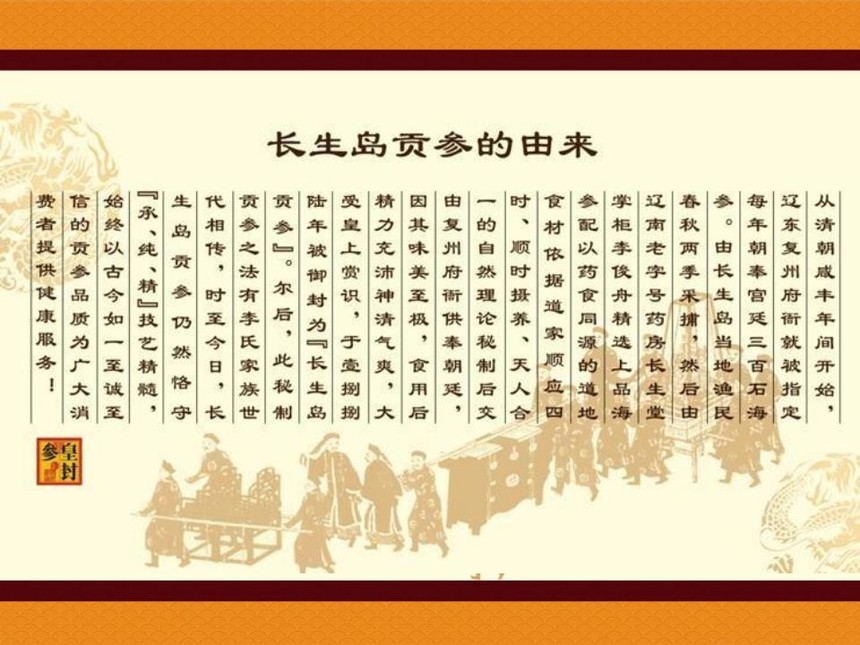 长生岛贡参的由来
从清朝咸丰年间开始，
辽东复州府衙就被指定
每年朝奉宫廷三百石海
参。由长生岛当地渔民
春秋两季采捕，然后由
辽南老字号药房长生堂
掌柜李俊舟精选上品海
参配以药食同源的道地
食材依据道家顺应四
时、顺时摄养、天人合
一的自然理论秘制后交
由复州府衙供奉朝廷，
因其味美至极，食用后
精力充沛神清气爽，大
受皇上赏识，于壹捌捌
陆年被御封为『长生岛
贡参』。尔后，此秘制
贡参之法有李氏家族世
代相传，时至今日，长
生岛贡参仍然恪守
『承、纯、精』技艺精髓，
始终以古今如一至诚至
信的贡参品质为广大消
费者提供健康服务！
皇封参